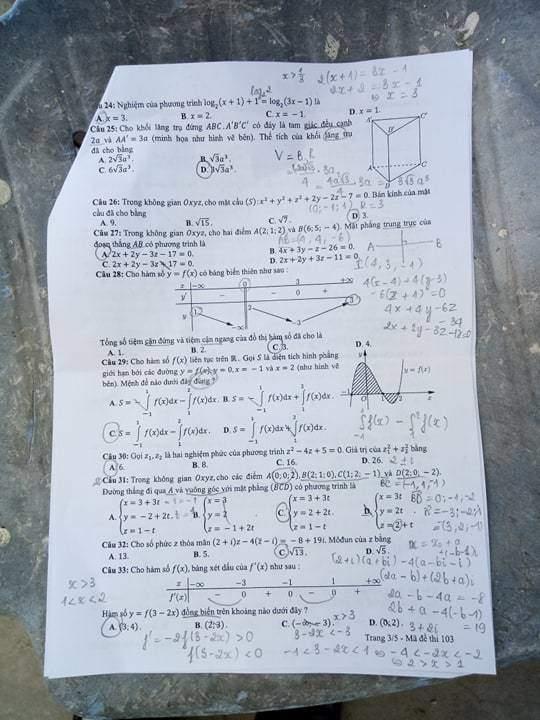 x > 1/3 2(x+1) = 3x - 1
2x + 2 = 3x - 1
⇔ x = 3
log₂2
24: Nghiệm của phương trình log₂(x + 1) + 1 = log₂(3x − 1) là
A. x = 3. B. x = 2. C. x = −1. D. x = 1.
Câu 25: Cho khối lăng trụ đứng ABC.A'B'C' có đáy là tam giác đều cạnh
2a và AA' = 3a (minh họa như hình vẽ bên). Thể tích của khối lăng trụ
đã cho bằng
A. 2√3a³. B. √3a³.
C. 6√3a³. D. 3√3a³.
V = B.h
A' C'
B'
A C
B
Câu 26: Trong không gian Oxyz, cho mặt cầu (S): x² + y² + z² + 2y − 2z − 7 = 0. Bán kính của mặt
cầu đã cho bằng
(0; -1; 1) R = 3
A. 9. B. √15. C. √7. D. 3.
Câu 27: Trong không gian Oxyz, cho hai điểm A(2; 1; 2) và B(6; 5; −4). Mặt phẳng trung trực của
đoạn thẳng AB có phương trình là
AB = (4, 4, -6)
A. 2x + 2y − 3z − 17 = 0. B. 4x + 3y − z − 26 = 0.
C. 2x + 2y − 3z + 17 = 0. D. 2x + 2y + 3z − 11 = 0.
A B
I(4, 3, -1)
Câu 28: Cho hàm số y = f(x) có bảng biến thiên như sau :
x −∞ 0 3 +∞
y' − − 0 +
y 1 −∞ 2 −3 3
4(x-4) + 4(y-3)
-6(z+1) = 0
4x + 4y - 6z
-34
2x + 2y - 3z - 17 = 0
Tổng số tiệm cận đứng và tiệm cận ngang của đồ thị hàm số đã cho là
A. 1. B. 2. C. 3. D. 4.
Câu 29: Cho hàm số f(x) liên tục trên ℝ. Gọi S là diện tích hình phẳng
giới hạn bởi các đường y = f(x), y = 0, x = −1 và x = 2 (như hình vẽ
bên). Mệnh đề nào dưới đây đúng ?
A. S = −∫₋₁¹ f(x)dx − ∫₁² f(x)dx. B. S = −∫₋₁¹ f(x)dx + ∫₁² f(x)dx.
C. S = ∫₋₁¹ f(x)dx − ∫₁² f(x)dx. D. S = ∫₋₁¹ f(x)dx + ∫₁² f(x)dx.
y y = f(x)
−1 O 1 2 x
∫₋₁¹ f(x) - ∫₁² f(x)
Câu 30: Gọi z₁, z₂ là hai nghiệm phức của phương trình z² − 4z + 5 = 0. Giá trị của z₁² + z₂² bằng
A. 6. B. 8. C. 16. D. 26.
2 ± i
Câu 31: Trong không gian Oxyz, cho các điểm A(0; 0; 2), B(2; 1; 0), C(1; 2; −1) và D(2; 0; −2).
Đường thẳng đi qua A và vuông góc với mặt phẳng (BCD) có phương trình là
BC = (-1, 1, -1)
BD = 0; -1; -2
= (3, 2, -1)
A. { x = 3 + 3t, y = −2 + 2t, z = 1 − t. B. { x = 3, y = 2, z = −1 + 2t. C. { x = 3 + 3t, y = 2 + 2t, z = 1 − t. D. { x = 3t, y = 2t, z = 2 + t.
Câu 32: Cho số phức z thỏa mãn (2 + i)z − 4(z̄ − i) = −8 + 19i. Môđun của z bằng
A. 13. B. 5. C. √13. D. √5.
(2+i)(a+bi) - 4(a-bi-i)
Câu 33: Cho hàm số f(x), bảng xét dấu của f'(x) như sau :
x −∞ −3 −1 1 +∞
f'(x) − 0 + 0 − 0 +
x > 3
1 < x < 2
(2a - b) + (2b + a)i
2a - b - 4a = -8
2b + a - 4(-b-1)
= 19
3 + 2i
Hàm số y = f(3 − 2x) đồng biến trên khoảng nào dưới đây ?
A. (3; 4). B. (2; 3). C. (−∞; −3). D. (0; 2).
x > 3
3 - 2x < -3
Trang 3/5 - Mã đề thi 103
f' = -2f(3-2x) > 0
f(3-2x) < 0
-1 < 3 - 2x < 1 ⇔ -4 < -2x < -2
⇔ 2 > x > 1